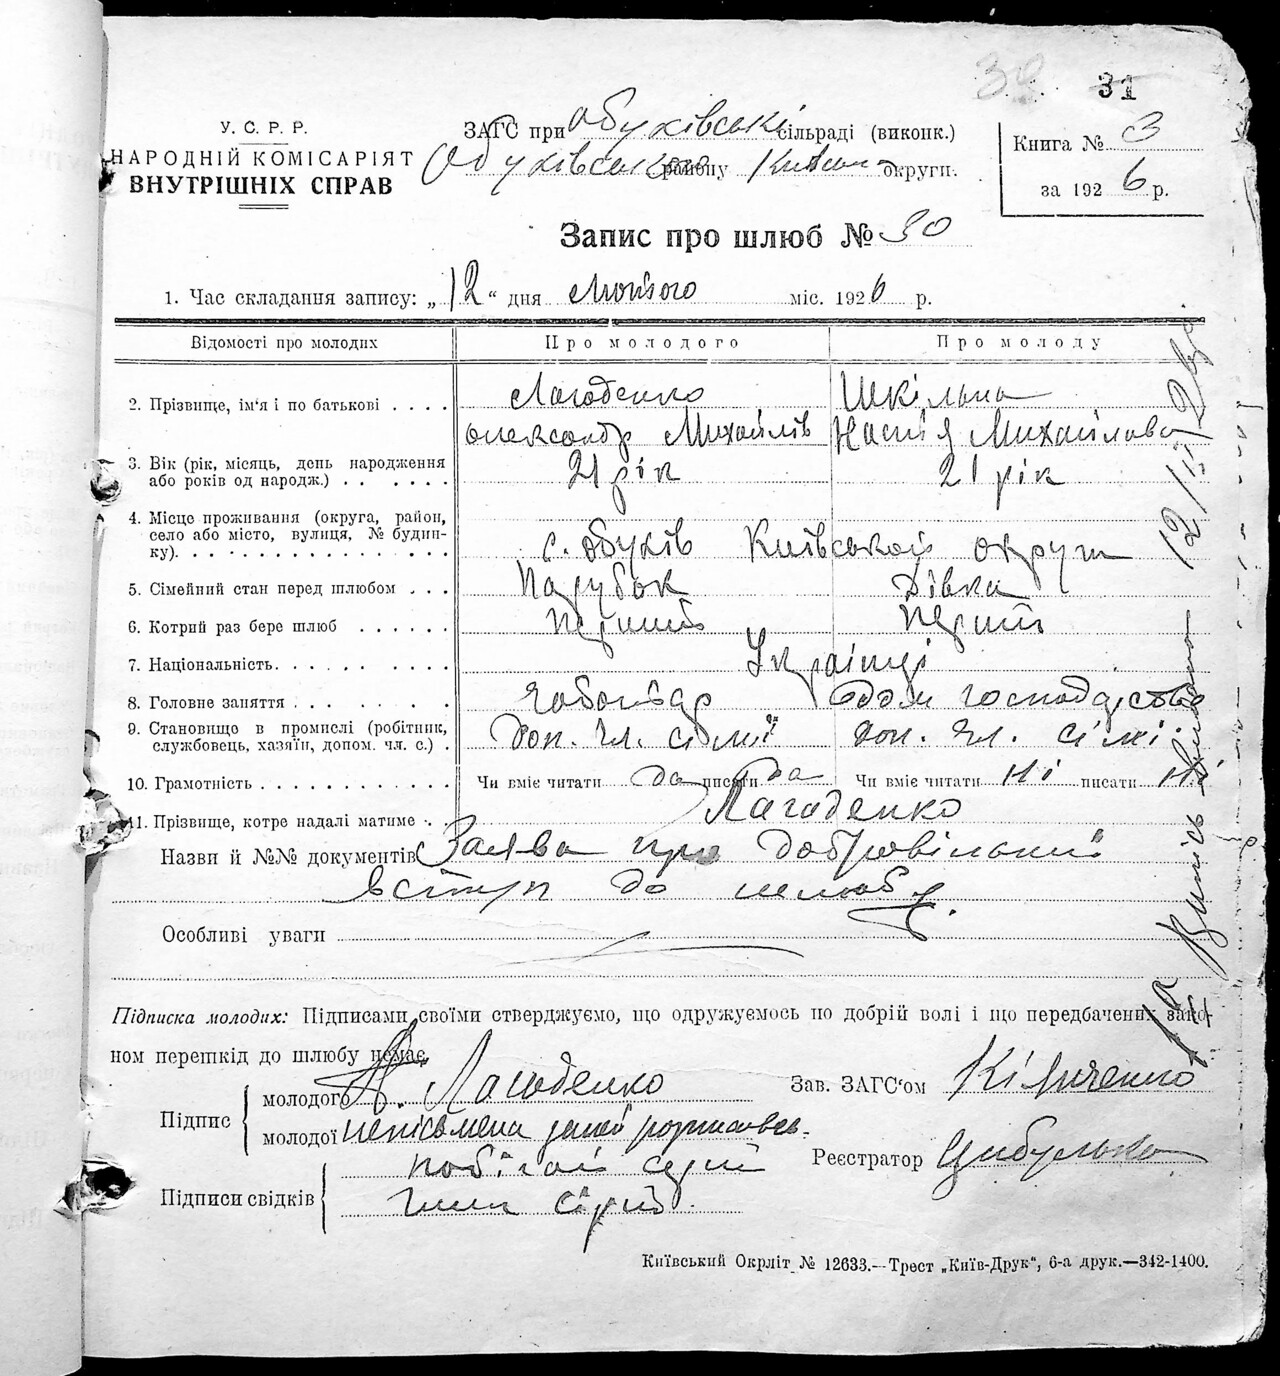 31
У. С. Р. Р.
НАРОДНІЙ КОМІСАРІЯТ
ВНУТРІШНІХ СПРАВ
ЗАГС при Обухівські сільраді (виконк.)
Обухівського району Київсько округи.
Книга № 3
за 1926 р.
Запис про шлюб № 30
1. Час складання запису: „12“ дня Лютого міс. 1926 р.
Відомості про молодих Про молодого Про молоду
2. Прізвище, ім'я і по батькові . . . . Лагоденко Шкільна
Олександр Михайлів Настя Михайлова
3. Вік (рік, місяць, день народження
або років од народж.) . . . . . . 21 рік 21 рік
4. Місце проживання (округа, район,
село або місто, вулиця, № будин-
ку). . . . . . . . . . . . . . . с. Обухів Київської округи
5. Сімейний стан перед шлюбом . . . Парубок Дівка
6. Котрий раз бере шлюб . . . . . . Перший Перший
7. Національність. . . . . . . . . . . Українці
8. Головне заняття . . . . . . . . . Чоботар Дом господарство
9. Становище в промислі (робітник,
службовець, хазяїн, допом. чл. с.) . Доп. чл. сімї Доп. чл. сімї.
10. Грамотність . . . . . . . . . . . . Чи вміє читати да писати да Чи вміє читати ні писати ні
11. Прізвище, котре надалі матиме . . Лагоденко
Назви й №№ документів Заява про добровільний
вступ до шлюбу.
Особливі уваги
Підписка молодих: Підписами своїми стверджуємо, що одружуємось по добрій волі і що передбачених зако-
ном перешкід до шлюбу немає
Підпис молодого А. Лагоденко
молодої неписьмена занеї розписався
Зав. ЗАГС'ом
Реєстратор Цибулька
Підписи свідків
Київський Окрліт № 12633.—Трест „Київ-Друк“, 6-а друк.—342-1400.